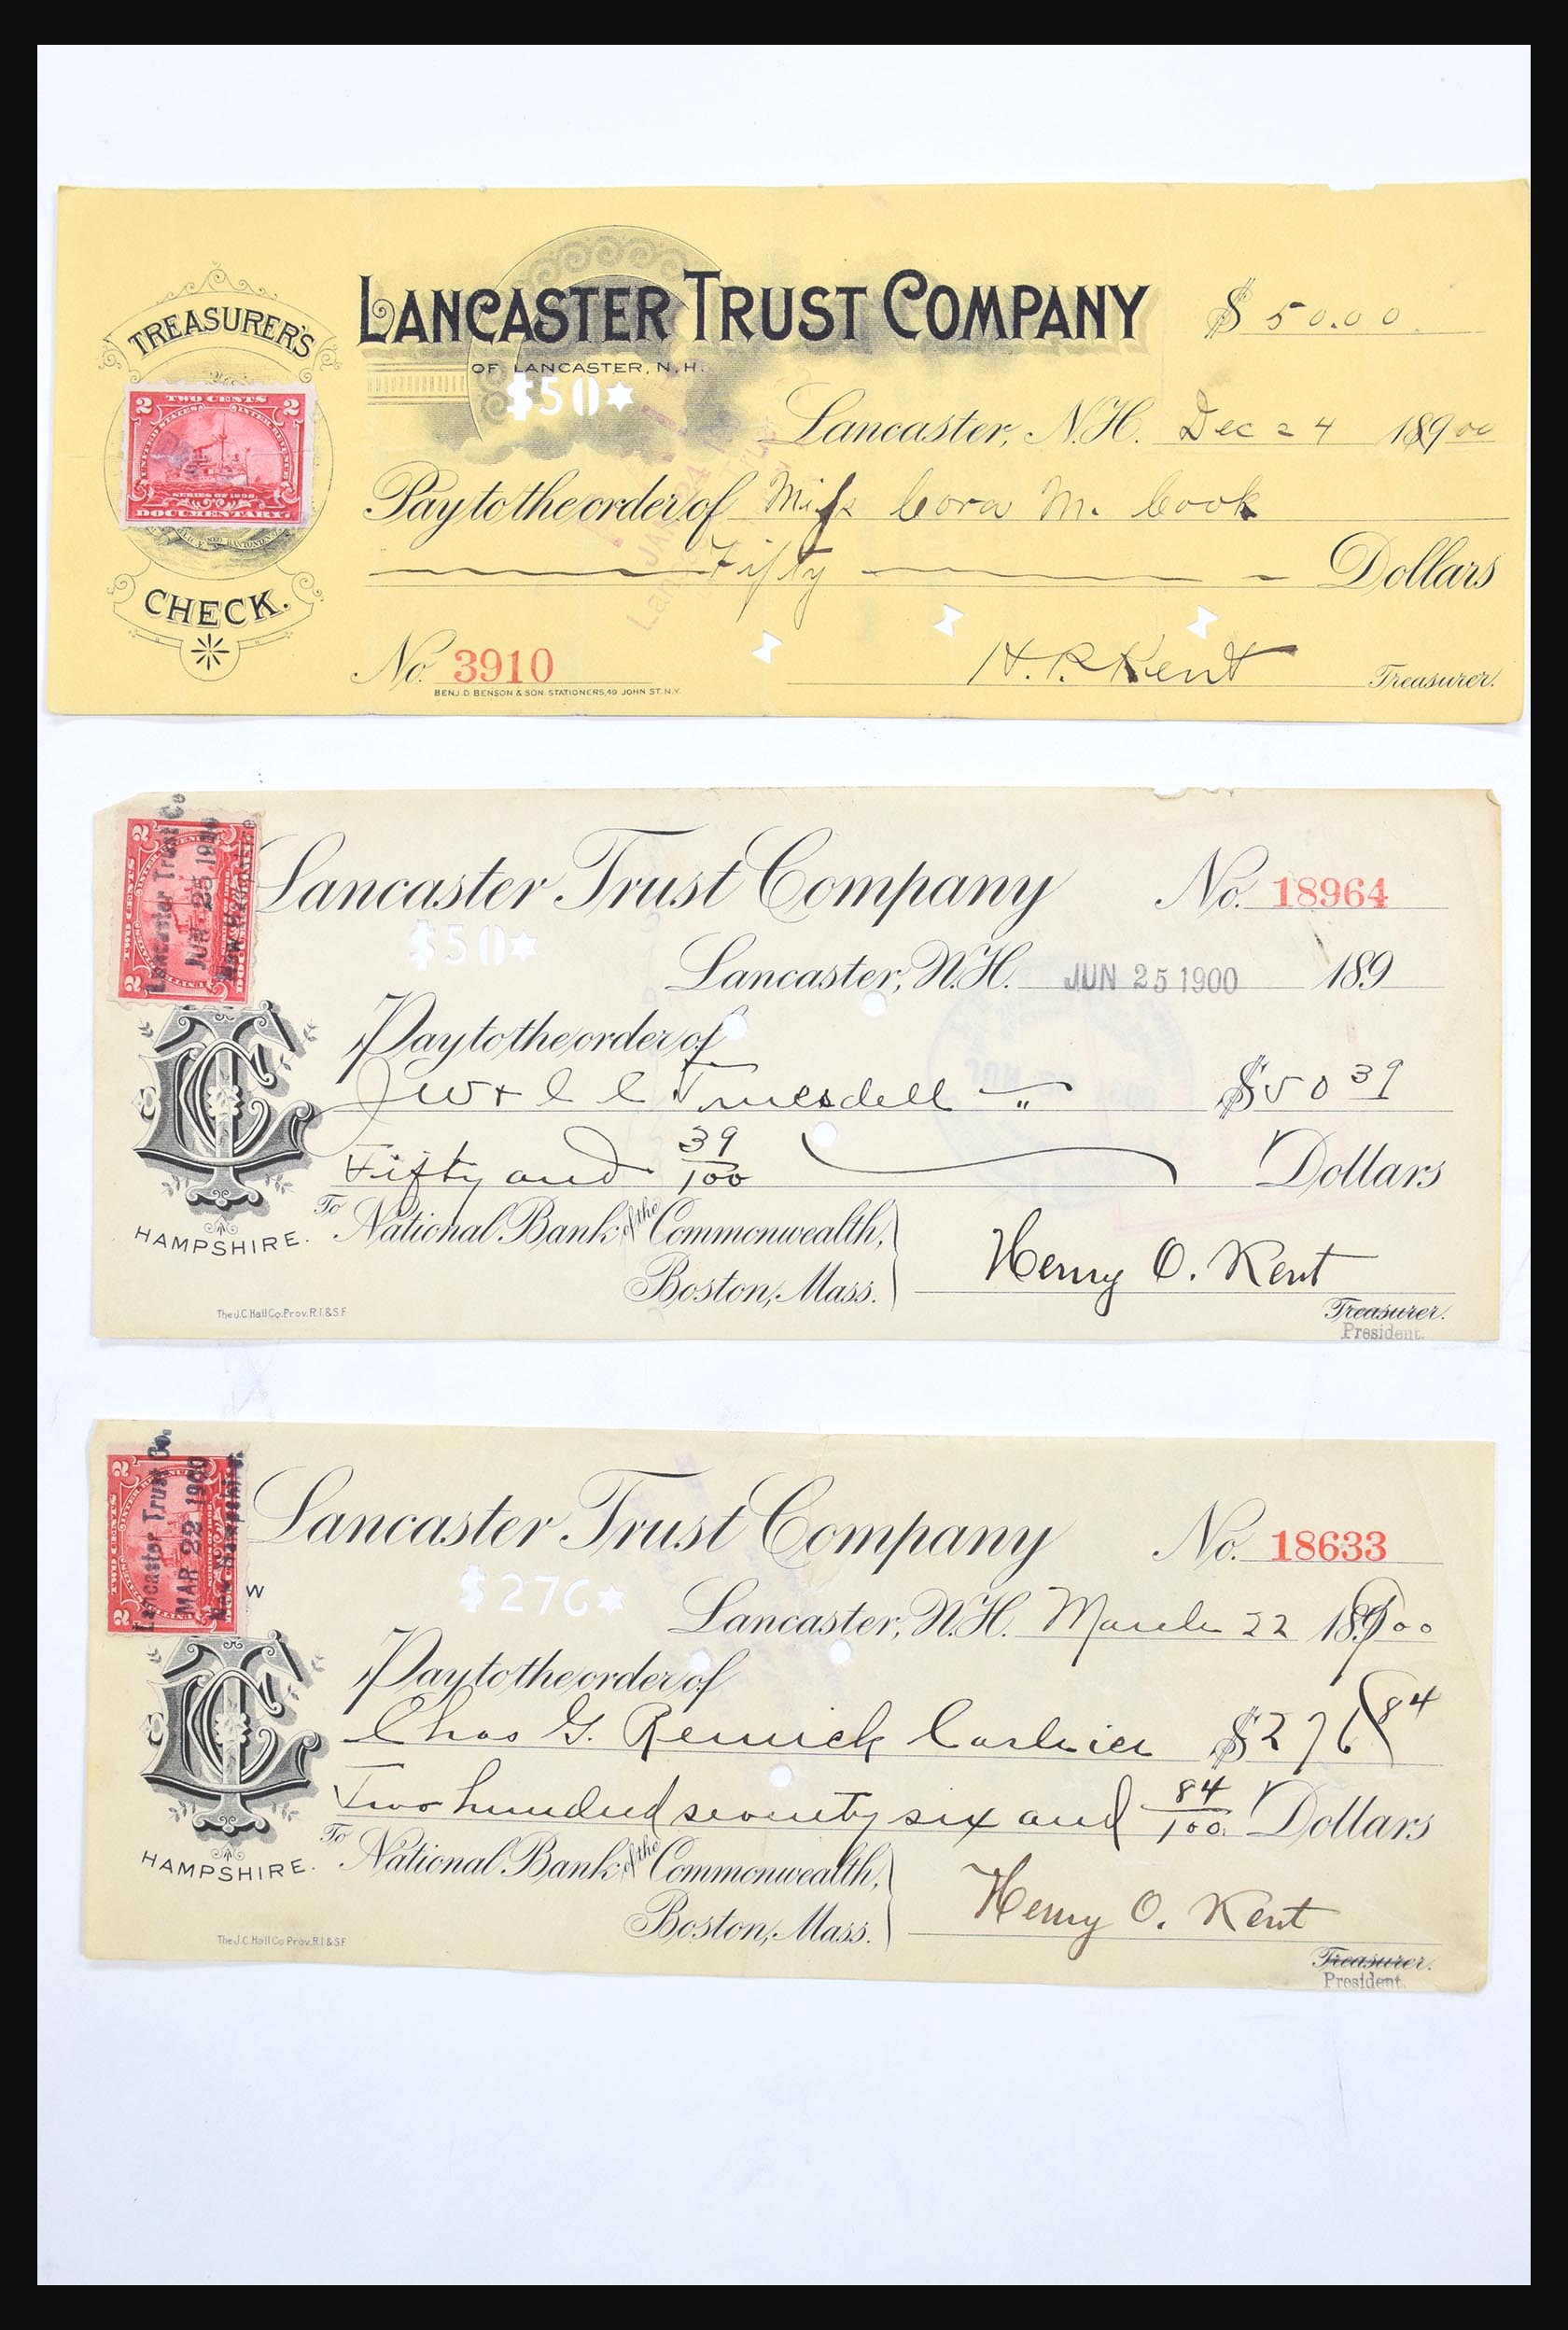 TREASURER'S
LANCASTER TRUST COMPANY
$ 50.00
OF LANCASTER, N.H.
$50★
2 TWO CENTS 2
UNITED STATES INTER. REVENUE
SERIES OF 1898.
DOCUMENTARY.
Lancaster, N.H. Dec 24 18900
Pay to the order of Miss Cora M. Cook
Fifty Dollars
CHECK.
No. 3910
H. P. Kent
Treasurer.
BENJ. D. BENSON & SON. STATIONERS, 49 JOHN ST. N.Y.
Lancaster Trust Co
JUN 25 1900
New Hampshire
Lancaster Trust Company No. 18964
$50★
Lancaster, N.H. JUN 25 1900 189
Pay to the order of
J W & C C Truesdell $50 39
Fifty and 39/100 Dollars
To National Bank of the Commonwealth,
HAMPSHIRE.
Boston, Mass.
Henry O. Kent
The J.C. Hall Co. Prov. R.I. & S.F.
Treasurer.
President.
Lancaster Trust Co.
MAR 22 1900
New Hampshire
Lancaster Trust Company No. 18633
W
$276★
Lancaster, N.H. March 22 18900
Pay to the order of
Chas G. Remick Cashier $276 84
Two hundred seventy six and 84/100 Dollars
To National Bank of the Commonwealth,
HAMPSHIRE.
Boston, Mass.
Henry O. Kent
The J.C. Hall Co. Prov. R.I. & S.F.
Treasurer.
President.